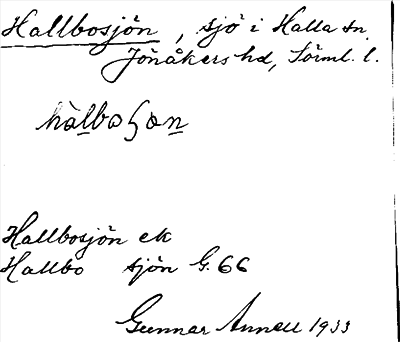 Hallbosjön, sjö i Halla sn.
Jönåkers hd, Sörml. l.
hàlboʃɷn
Hallbosjön ek
Hallbo sjön G. 66
Gunnar Annell 1933